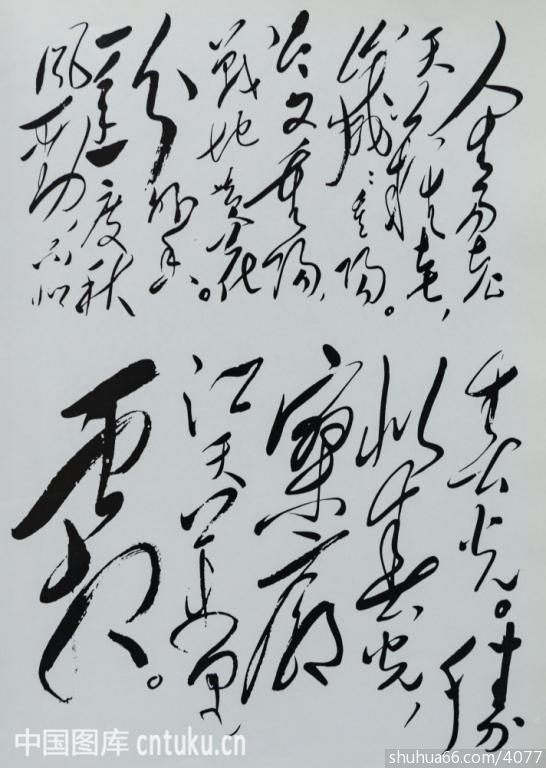 人生易老
天難老，
歲歲重陽。
今又重陽，
戰地黄花
分外香。
一年一度秋
風勁，不似
春光。勝
似春光，
寥廓
江天萬里
霜。
中国图库 cntuku.cn
shuhua66.com/4077